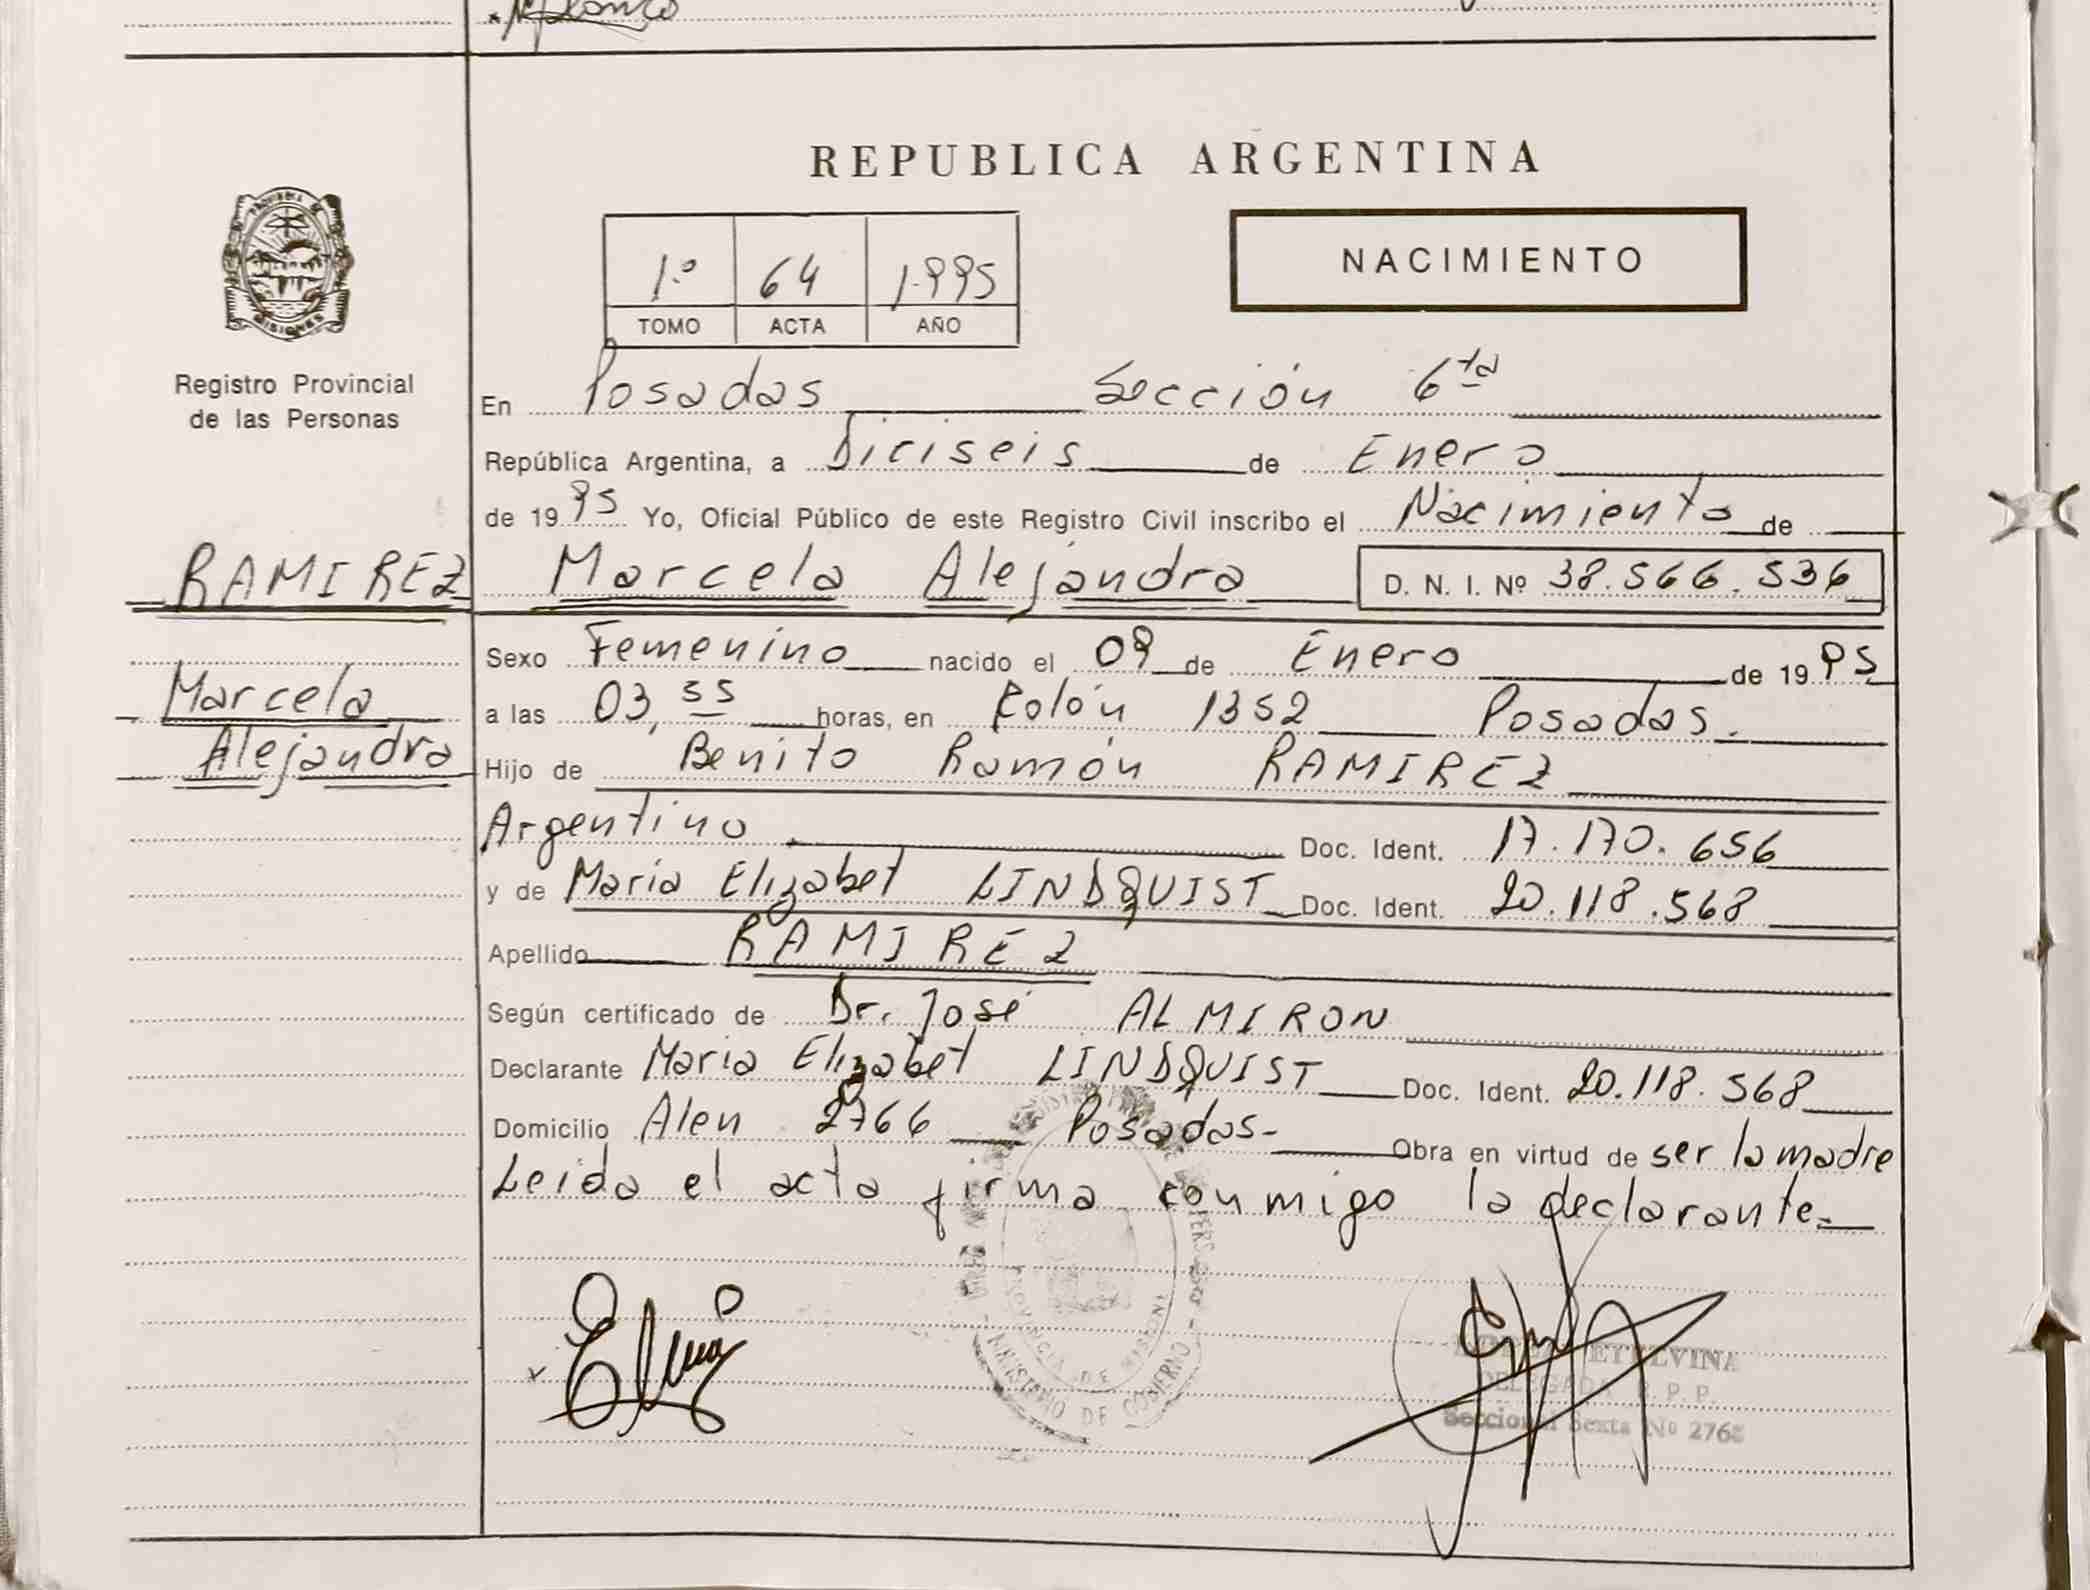 REPUBLICA ARGENTINA
NACIMIENTO
1.º 64 1.995
TOMO ACTA AÑO
MISIONES
Registro Provincial
de las Personas
En Posadas Sección 6ta
República Argentina, a Diciseis de Enero
de 1995 Yo, Oficial Público de este Registro Civil inscribo el Nacimiento de
RAMIREZ Marcela Alejandra D. N. I. Nº 38.566.536
Sexo Femenino nacido el 09 de Enero de 1995
Marcela
a las 03,55 horas, en Kolón 1352 Posadas.
Alejandra
Hijo de Benito Ramón RAMIREZ
Argentino Doc. Ident. 17.170.656
y de Maria Elizabet LINDQUIST Doc. Ident. 20.118.568
Apellido RAMIREZ
Según certificado de Dr. José ALMIRON
Declarante Maria Elizabet LINDQUIST Doc. Ident. 20.118.568
Domicilio Alen 2766 Posadas- Obra en virtud de ser la madre
Leida el acta firma conmigo la declarante.
PROVINCIA DE MISIONES
MINISTERIO DE GOBIERNO
ETELVINA
DELEGADA R. P. P.
Seccional Sexta Nº 276